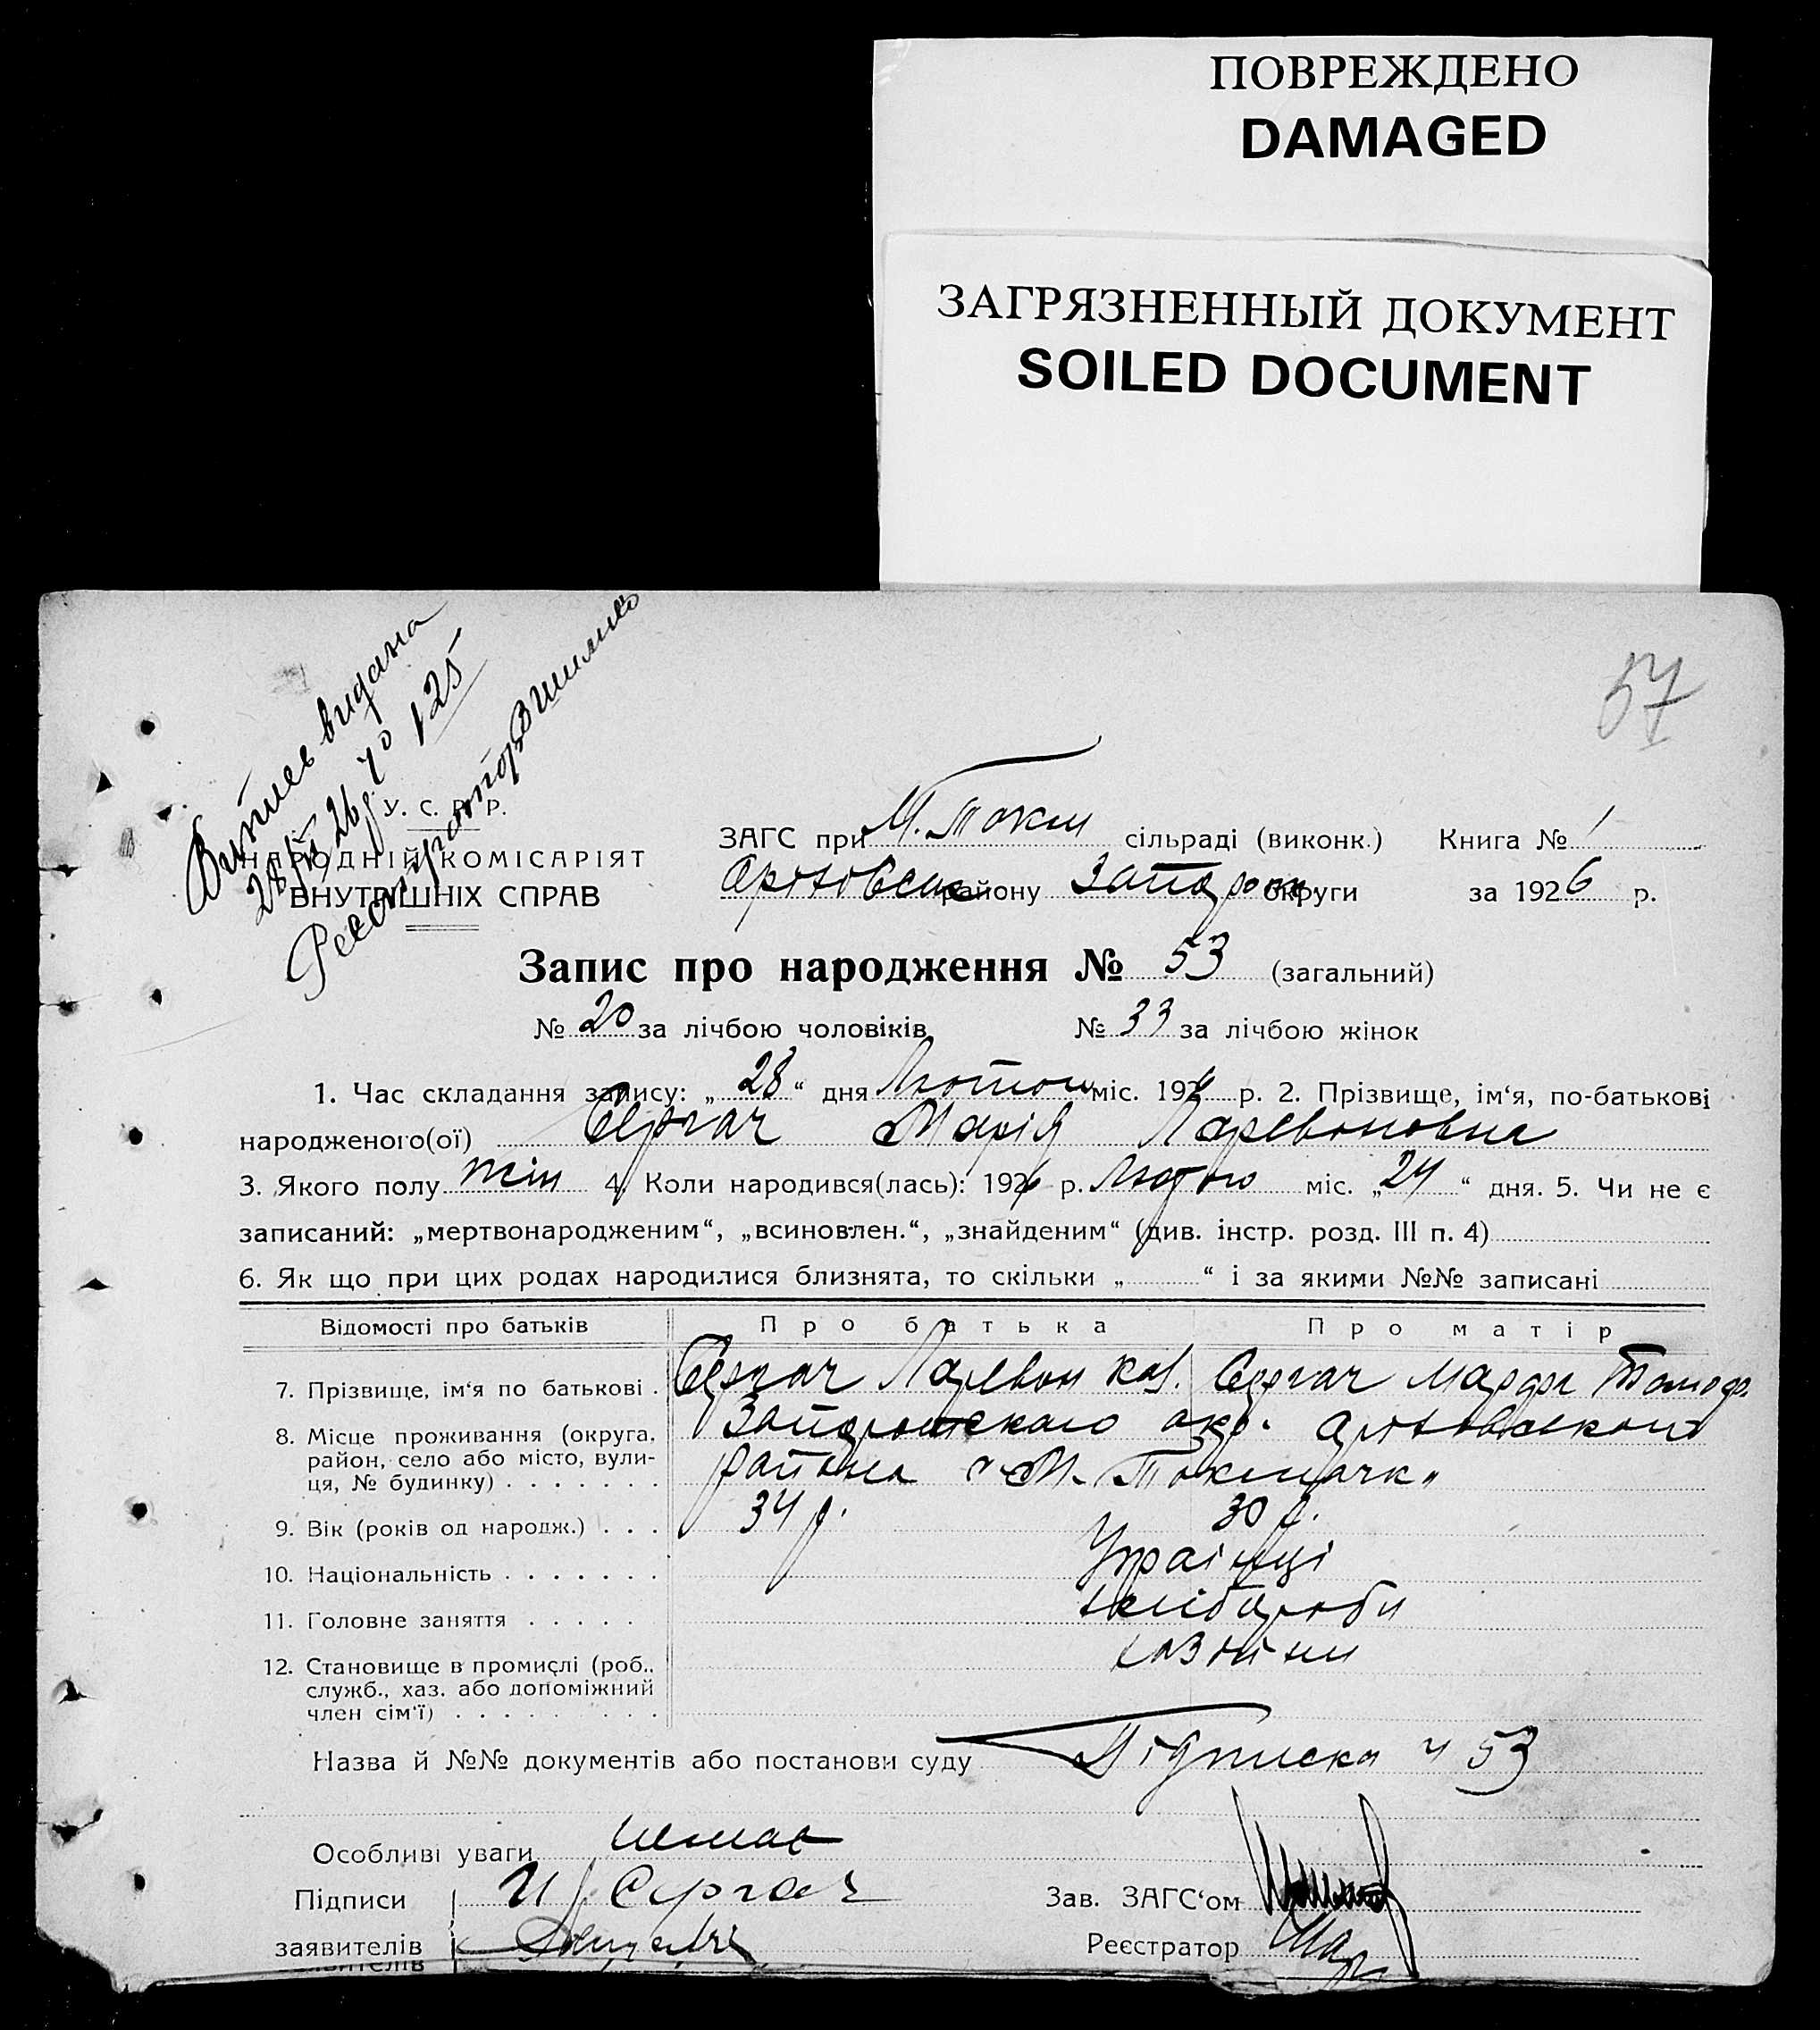 ПОВРЕЖДЕНО
DAMAGED
ЗАГРЯЗНЕННЫЙ ДОКУМЕНТ
SOILED DOCUMENT
57
Витяг видана
28/II 26 р. № 125
Реєстратор
У. С. Р. Р.
НАРОДНІЙ КОМІСАРІЯТ
ВНУТРІШНІХ СПРАВ
ЗАГС при М. Токм сільраді (виконк.) Книга № 1
району Запор округи за 1926 р.
Запис про народження № 53 (загальний)
№ 20 за лічбою чоловіків № 33 за лічбою жінок
1. Час складання запису: „ 28 “ дня Лютого міс. 1926 р. 2. Прізвище, ім‘я, по-батькові
народженого(ої) Сергач Марія Ларивоновна
3. Якого полу жін 4. Коли народився(лась): 1926 р. Лютого міс. „ 24 “ дня. 5. Чи не є
записаний: „мертвонародженим“, „всиновлен.“, „знайденим“ (див. інстр. розд. III п. 4)
6. Як що при цих родах народилися близнята, то скільки „ “ і за якими №№ записані
Відомості про батьків Про батька Про матір
7. Прізвище, ім‘я по батькові . Сергач Ларивон Сергач Марфа Тимоф.
8. Місце проживання (округа, район, село або місто, вулиця, № будинку) . . . . . . . Запорожского окр.
района М. Токмачк
9. Вік (років од народж.) . . . 34 р. 30 р.
10. Національність . . . . . . . Українці
11. Головне заняття . . . . . хлібороби
12. Становище в промислі (роб., служб., хаз. або допоміжний член сім‘ї) . . . . . . . . хазяїни
Назва й №№ документів або постанови суду Підписка ч 53
Особливі уваги немає
Підписи Сергач Зав. ЗАГС‘ом
заявителів Реєстратор